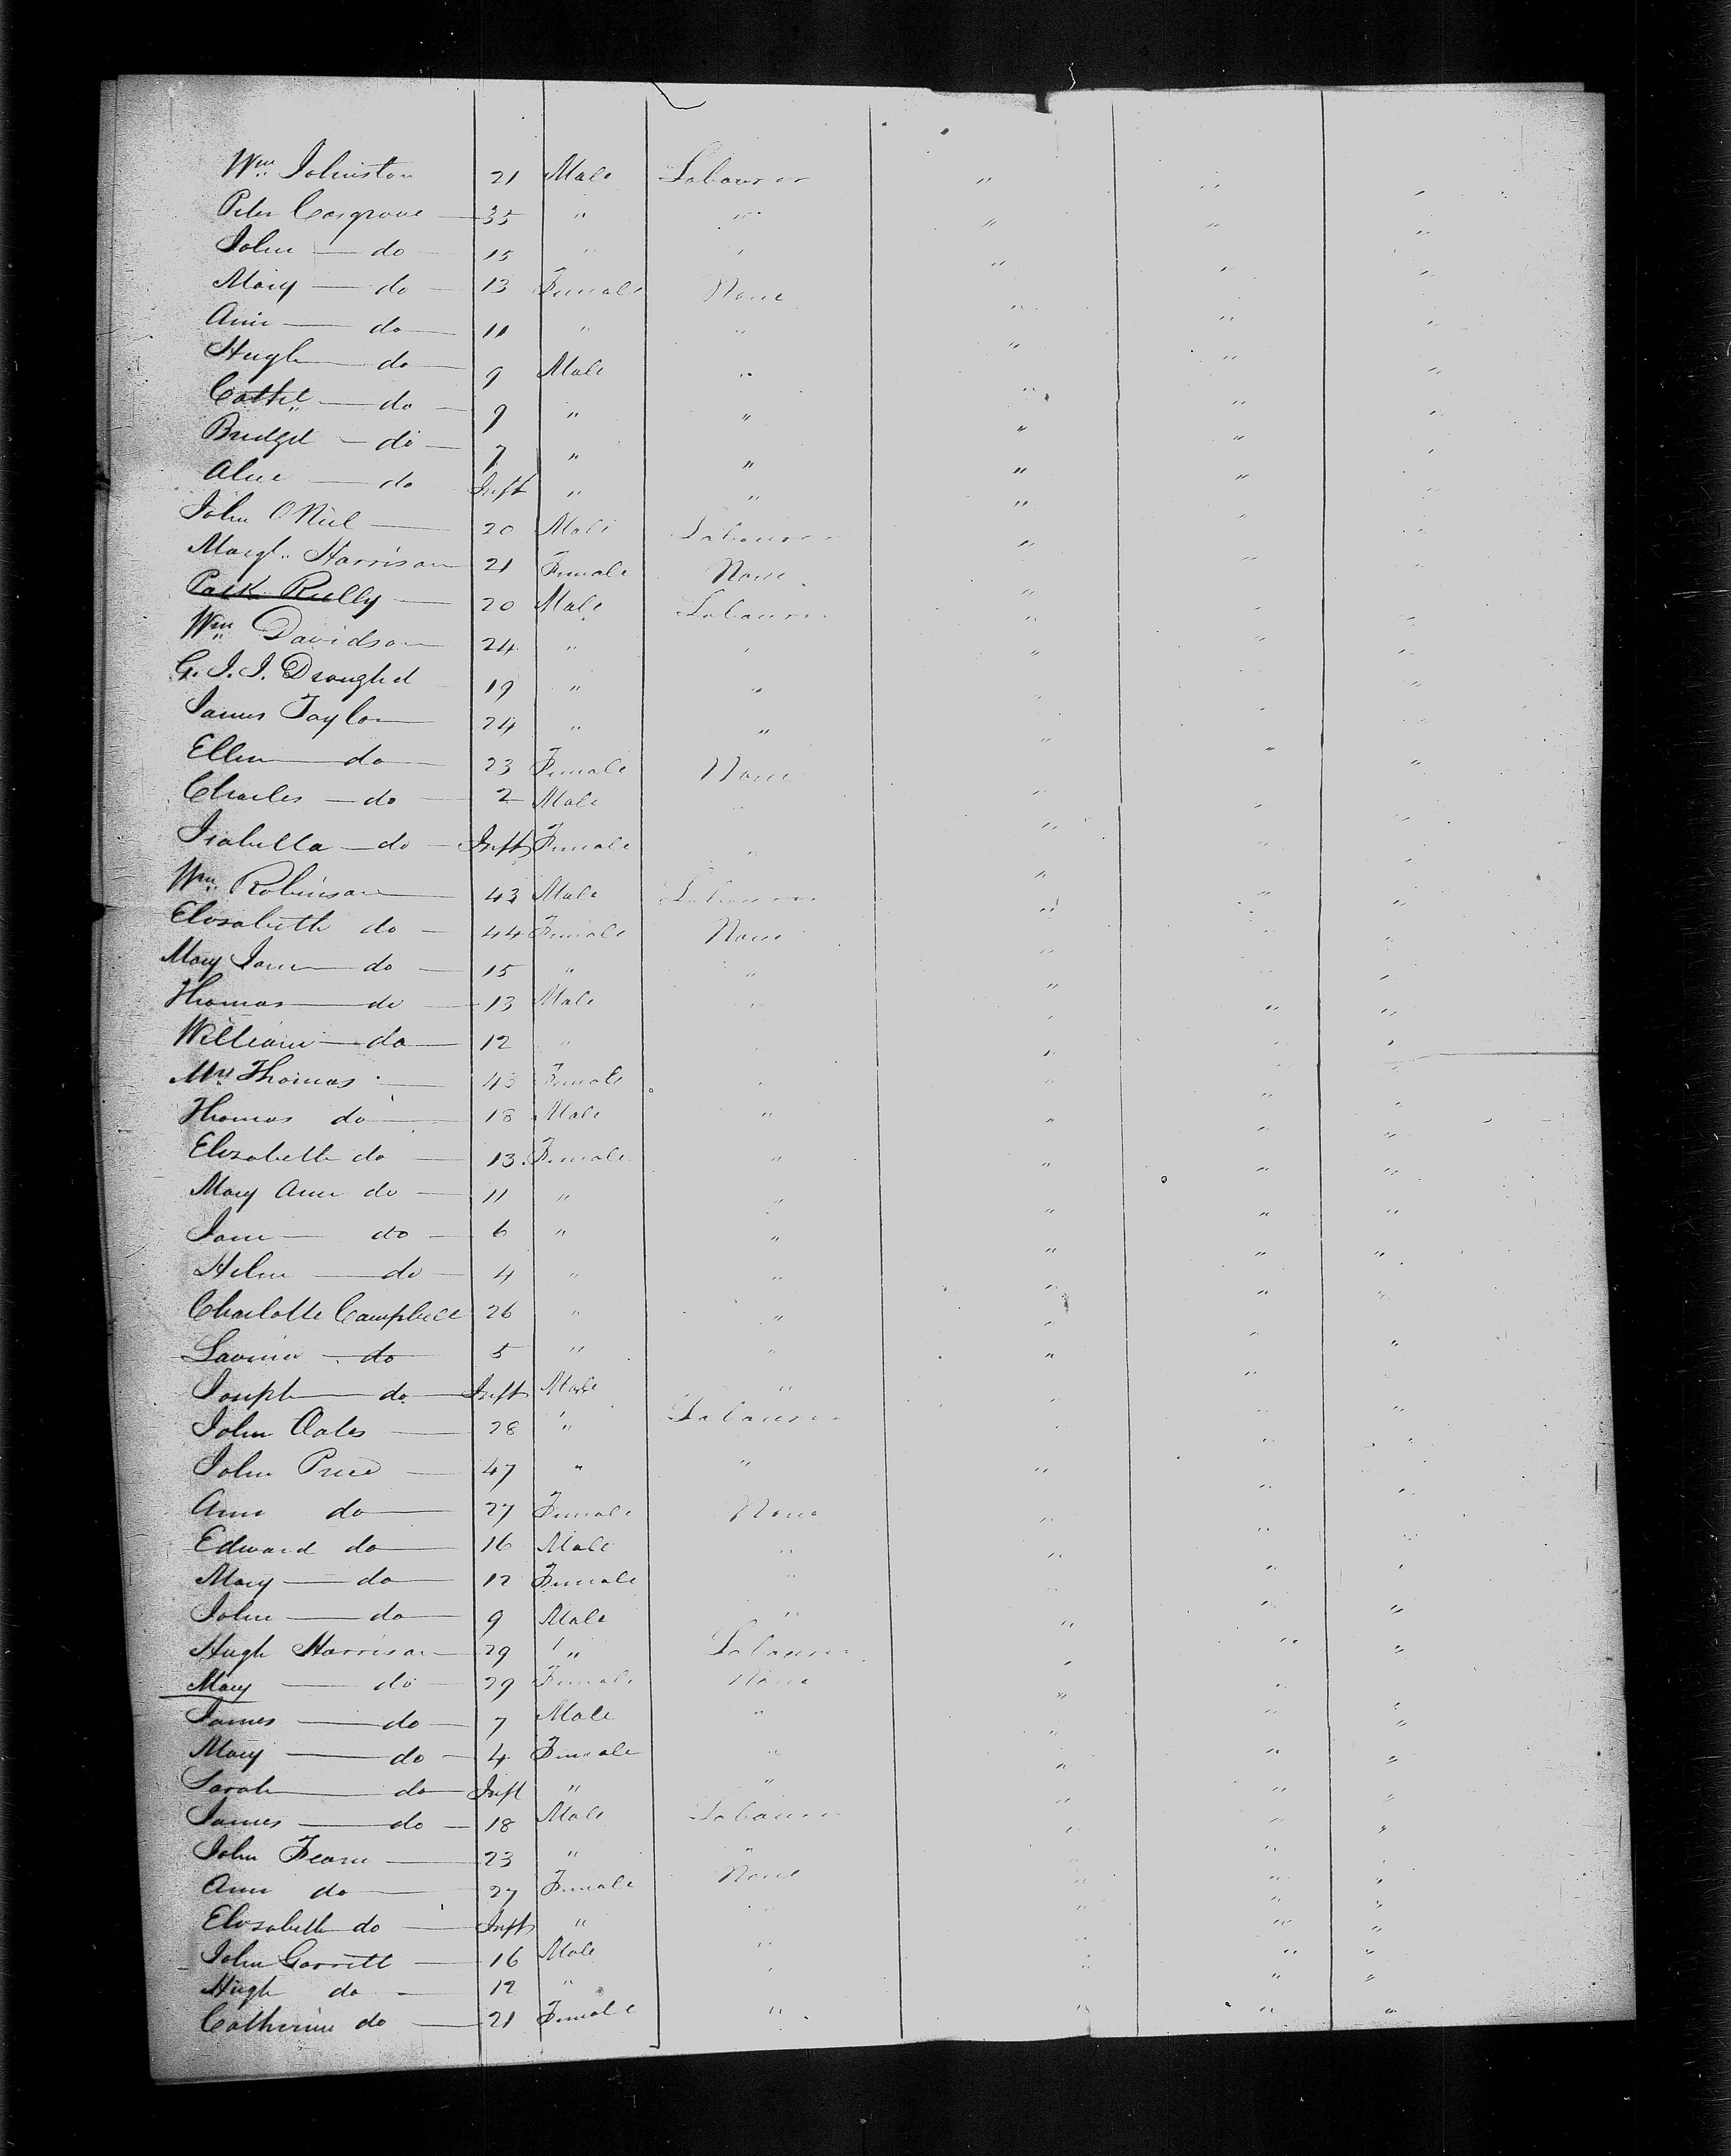 Wm. Johnston 21 Male Labourer " " "
Peter Cosgrove — 35 " " " " "
John — do 15 " " " " "
Mary — do — 13 Female None " " "
Ann — do — 11 " " " " "
Hugh — do — 9 Male " " " "
Cathe — do — 9 " " " " "
Bridget — do — 7 " " " " "
Alice — do Inft " " " " "
John O'Neil — 20 Male Labourer " " "
Margt. Harrison 21 Female None " " "
Patk Reilly — 20 Male Labourer " " "
Wm Davidson 24 " " " " "
G. J. J. 19 " " " " "
James Taylor 24 " " " " "
Ellen — do — 23 Female None " " "
Charles — do — 2 Male " " " "
Isabella — do — Inft Female " " " "
Wm. Robinson 43 Male Labourer " " "
Elizabeth do — 44 Female None " " "
Mary Jane — do — 15 " " " " "
Thomas — do — 13 Male " " " "
William — do — 12 " " " " "
Mrs Thomas — 43 Female " " " "
Thomas do — 18 Male " " " "
Elizabeth do — 13 Female " " " "
Mary Ann do — 11 " " " " "
Jane — do — 6 " " " " "
Helen — do — 4 " " " " "
Charlotte Campbell 26 " " " " "
Lavinia — do 5 " " " " "
Joseph — do — Inft Male " " " "
John Oates — 28 " Labourer " " "
John Price — 47 " " " " "
Ann do — 27 Female None " " "
Edward do — 16 Male " " " "
Mary — do — 12 Female " " " "
John — do — 9 Male " " " "
Hugh Harrison 29 " Labourer " " "
Mary — do — 29 Female None " " "
James — do — 7 Male " " " "
Mary — do — 4 Female " " " "
Sarah — do — Inft " " " " "
James — do — 18 Male Labourer " " "
John — 23 " " " " "
Ann do — 27 Female None " " "
Elizabeth do — Inft " " " " "
John Garrett — 16 Male " " " "
Hugh do — 12 " " " " "
Catherine do — 21 Female " " " "